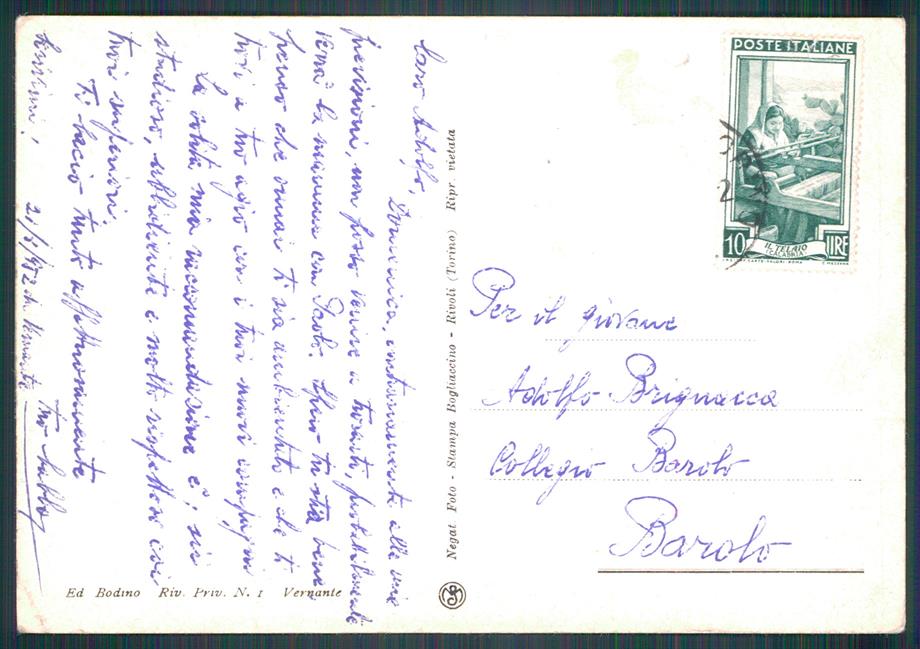 Caro Adolfo,
Domenica, contrariamente alle mie
previsioni, non posso venire a trovarti, probabilmente
verrà la mamma con Paolo. Spero tu stia bene e
penso che ormai ti sia ambientato e che ti
trovi a tuo agio con i tuoi nuovi compagni
La solita mia raccomandazione è: sii
studioso, ubbidiente e molto rispettoso coi
tuoi superiori.
Ti bacio tanto affettuosamente
tuo babbo
Vernante
Ed Bodino Riv. Priv. N. 1 Vernante
Negat Foto - Stampa Bogliaccino - Rivoli (Torino) Ripr. vietata
POSTE ITALIANE
10 LIRE
IL TELAIO
(CALABRIA)
Per il giovane
Adolfo Brignacca
Collegio Barolo
Barolo